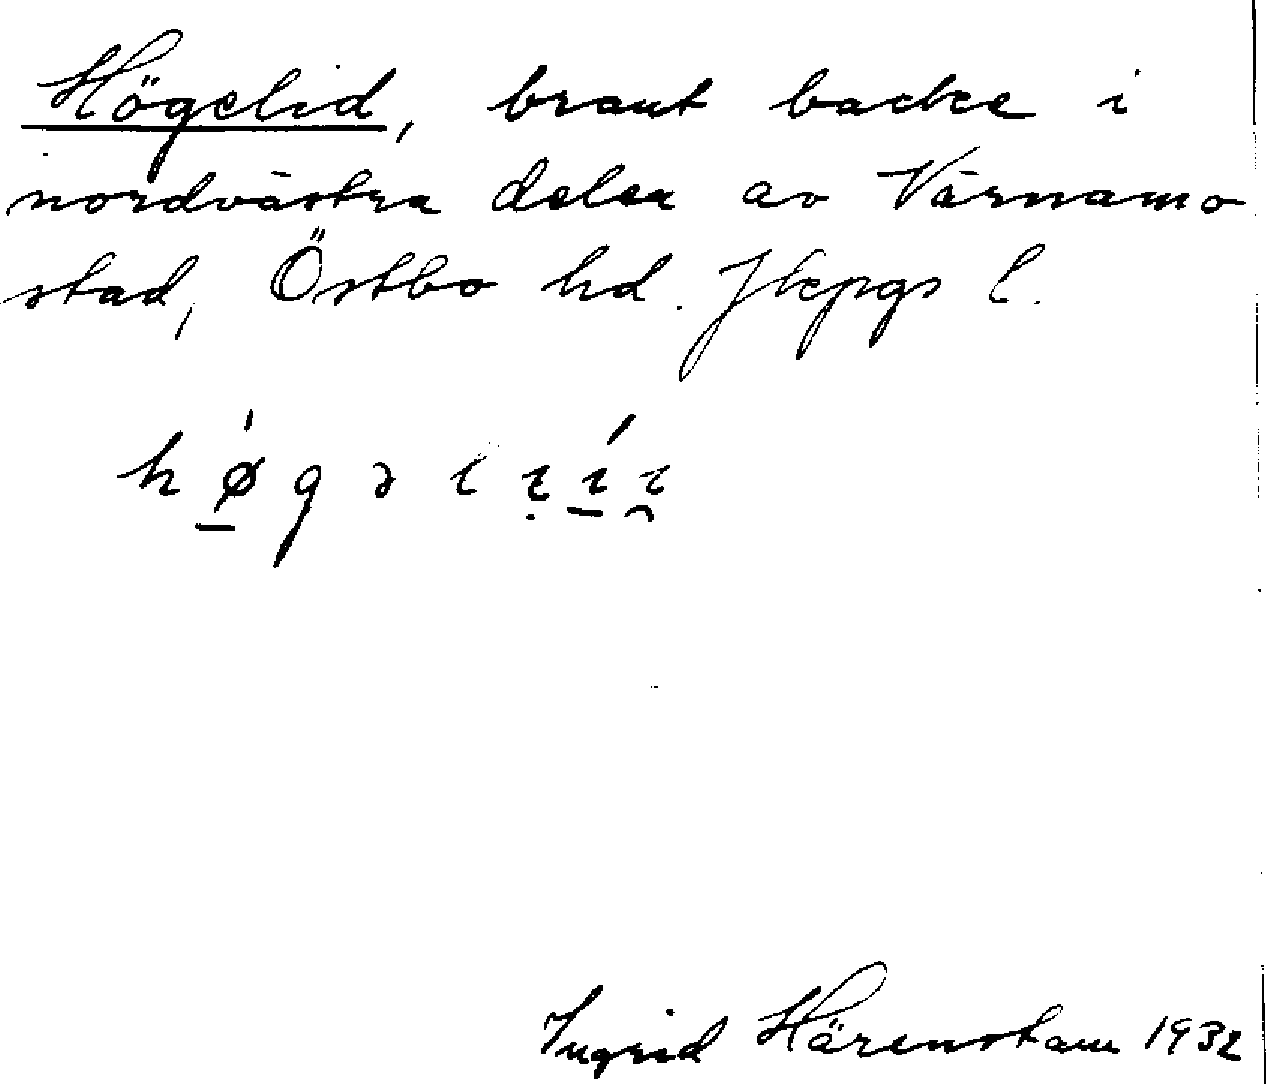 Högelid, brant backe i
nordvästra delen av Värnamo
stad, Östbo hd. Jkpgs l.
hǿ̱gəlị í̱ i̯
Ingrid Härenstam 1932